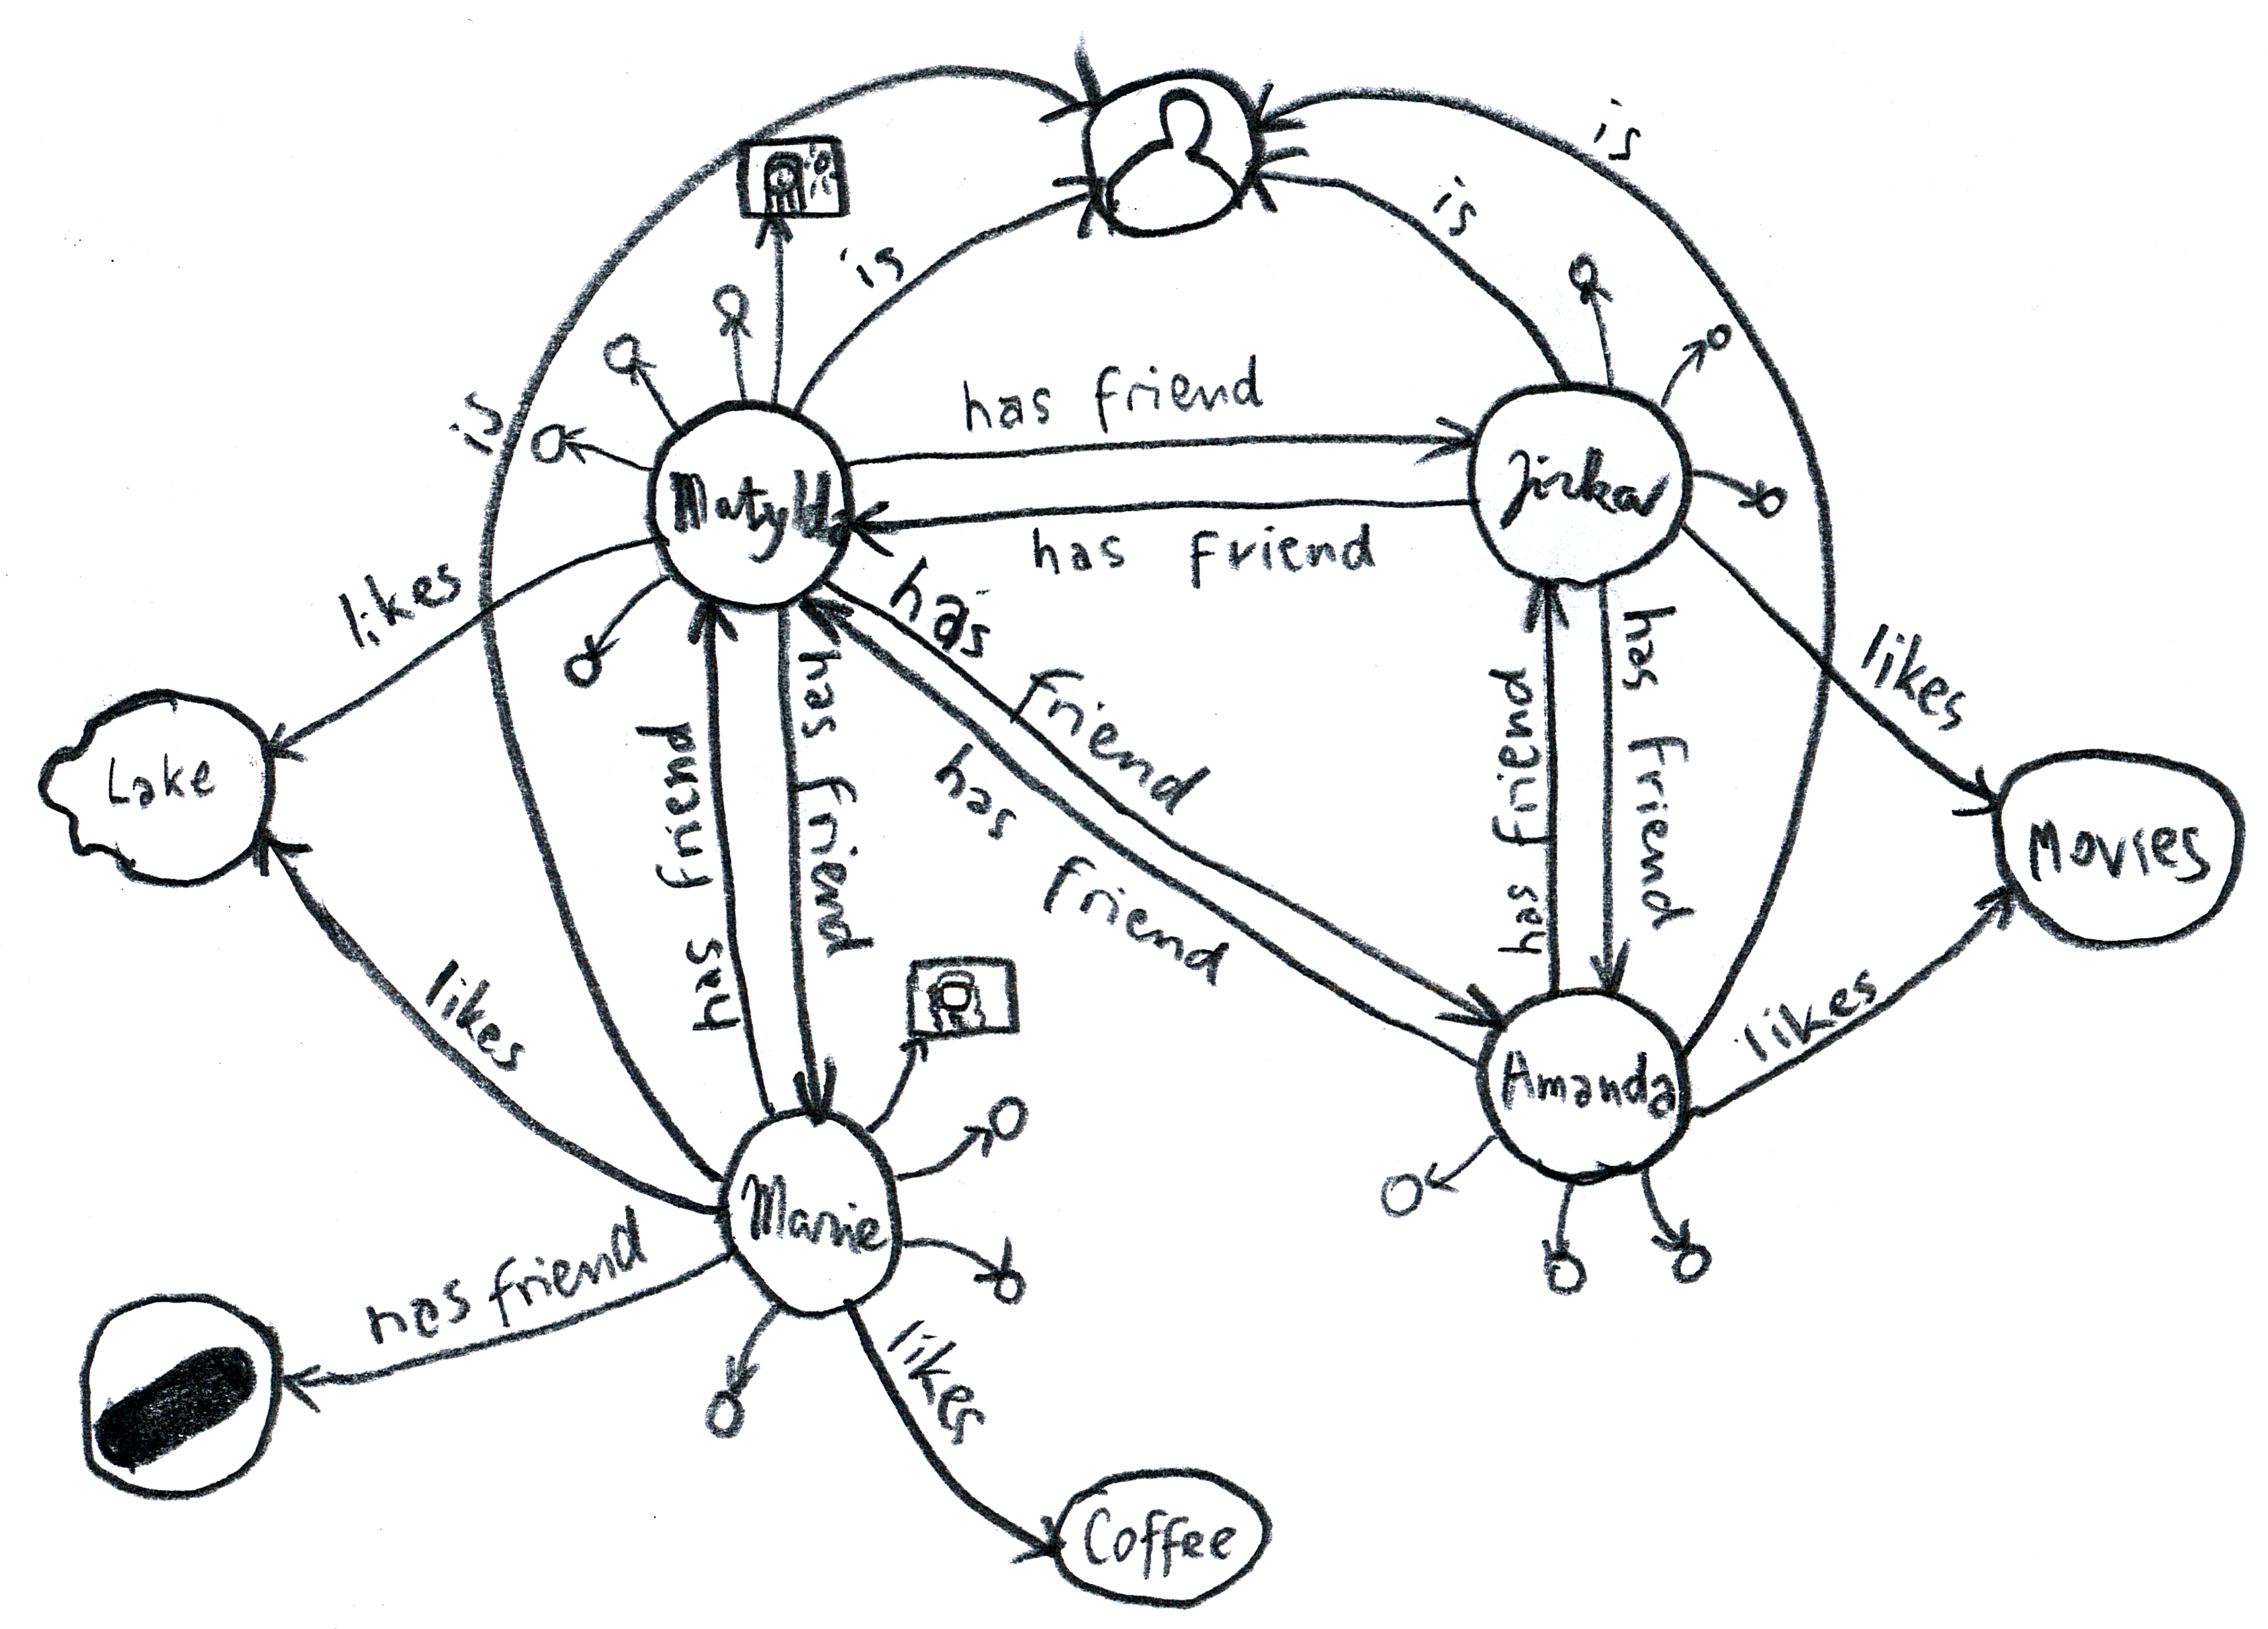 is
is
is
is
has friend
Matylda
Jirka
has friend
likes
has friend
has friend
has friend
has friend
has friend
has friend
likes
Lake
Movies
likes
likes
Amanda
Marie
has friend
likes
Coffee